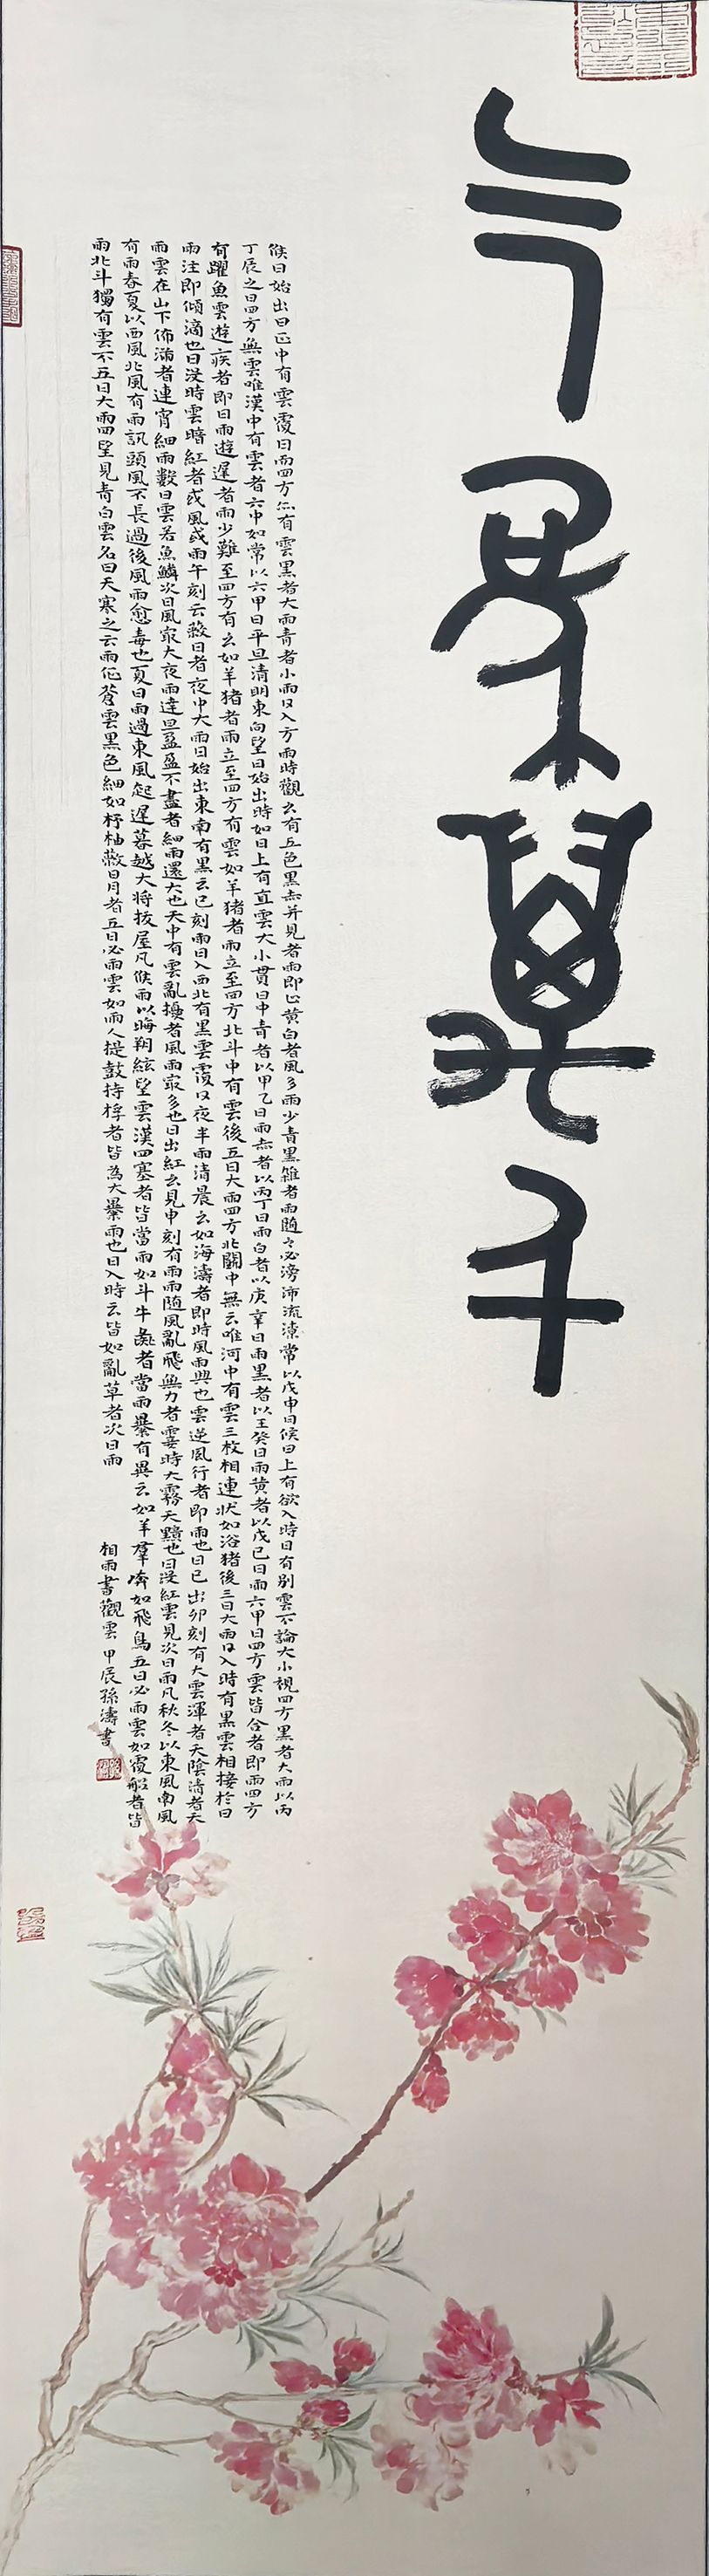 候日始出日正中有雲覆日而四方亦有雲黑者大雨青者小雨日入方雨時觀雲有五色黑赤并見者雨即止黄白者風多雨少青黑雜者雨隨之必滂沛流潦常以戊申日候日上有欲入時日有别雲不論大小視四方黑者大雨以丙
丁辰之日四方無雲唯漢中有雲者六中如常以六甲日平旦清明東向望日始出時如日上有直雲大小貫日中青者以甲乙日雨赤者以丙丁日雨白者以庚辛日雨黑者以王癸日雨黄者以戊己日雨六甲日四方雲皆合者即雨四方
有躍魚雲遊疾者即日雨遊遲者雨少難至四方有云如羊猪者雨立至四方有雲如羊猪者雨立至四方北斗中有雲後五日大雨四方北闢中無云唯河中有雲三枚相連狀如浴猪後三日大雨日入時有黑雲相接於日
雨注即傾滴也日没時雲暗紅者或風或雨午刻云蔽日者夜中大雨日始出東南有黑云巳刻雨日入西北有黑雲覆日夜半雨清晨云如海濤者即時風雨興也雲逆風行者即雨也日已出卯刻有大雲渾者天陰清者天
雨雲在山下佈滿者連宵細雨數日雲若魚鱗次日風最大夜雨達旦盈盈不盡者細雨還大也天中有雲亂擾者風雨最多也日出紅云見申刻有雨雨随風亂飛無力者霎時大霧天黯也日没紅雲見次日雨凡秋冬以東風南風
有雨春夏以西風北風有雨訊頭風不長過後風雨愈毒也夏日雨過東風起遲暮越大将拔屋凡候雨以晦朔絃望雲漢四塞者皆當雨如斗牛彘者當雨暴有異云如羊羣奔如飛鳥五日必雨雲如覆船者皆
雨北斗獨有雲不五日大雨四望見青白雲名曰天寒之云雨佗蒼雲黑色細如杼柚蔽日月者五日必雨雲如雨人提鼓持桴者皆為大暴雨也日入時云皆如亂草者次日雨
相雨書觀雲 甲辰孫濤書